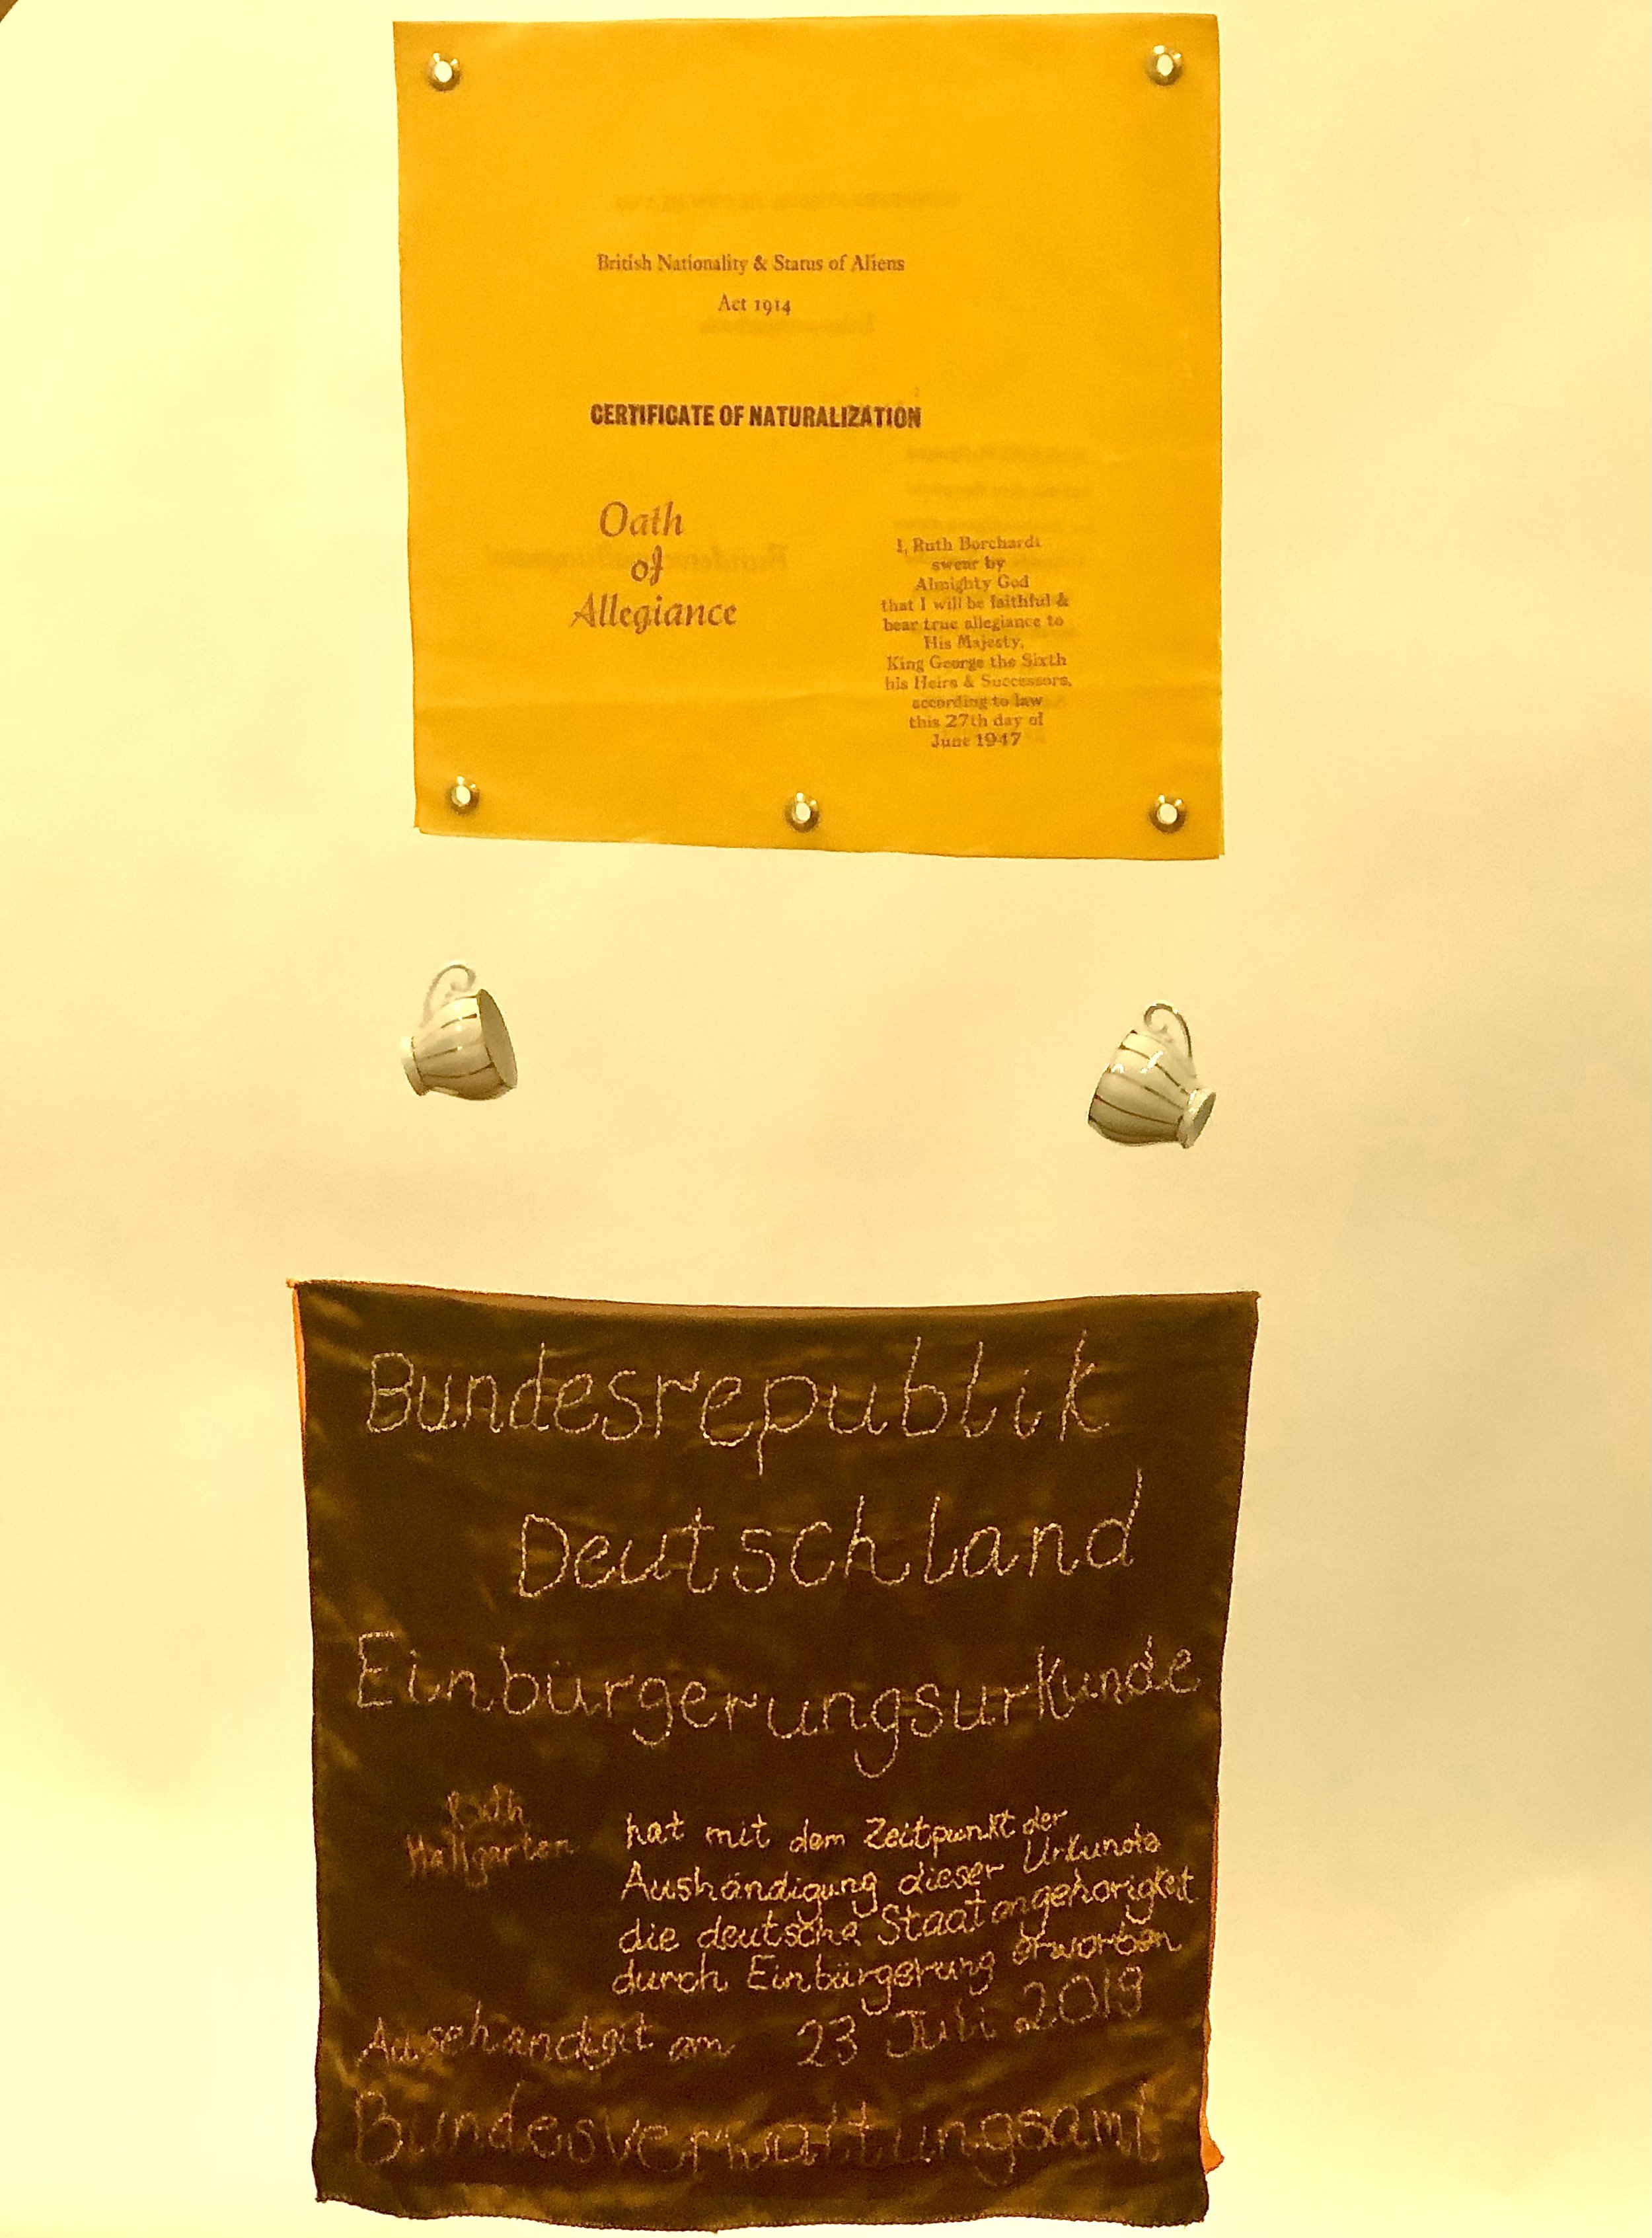 British Nationality & Status of Aliens
Act 1914
CERTIFICATE OF NATURALIZATION
Oath
of
Allegiance
I, Ruth Borchardt
swear by
Almighty God
that I will be faithful &
bear true allegiance to
His Majesty,
King George the Sixth
his Heirs & Successors,
according to law
this 27th day of
June 1947
Bundesrepublik
Deutschland
Einbürgerungsurkunde
Ruth
Hallgarten
hat mit dem Zeitpunkt der
Aushändigung dieser Urkunde
die deutsche Staatangehörigkeit
durch Einbürgerung erworben
am 23 Juli 2019
Bundesverwaltungsamt